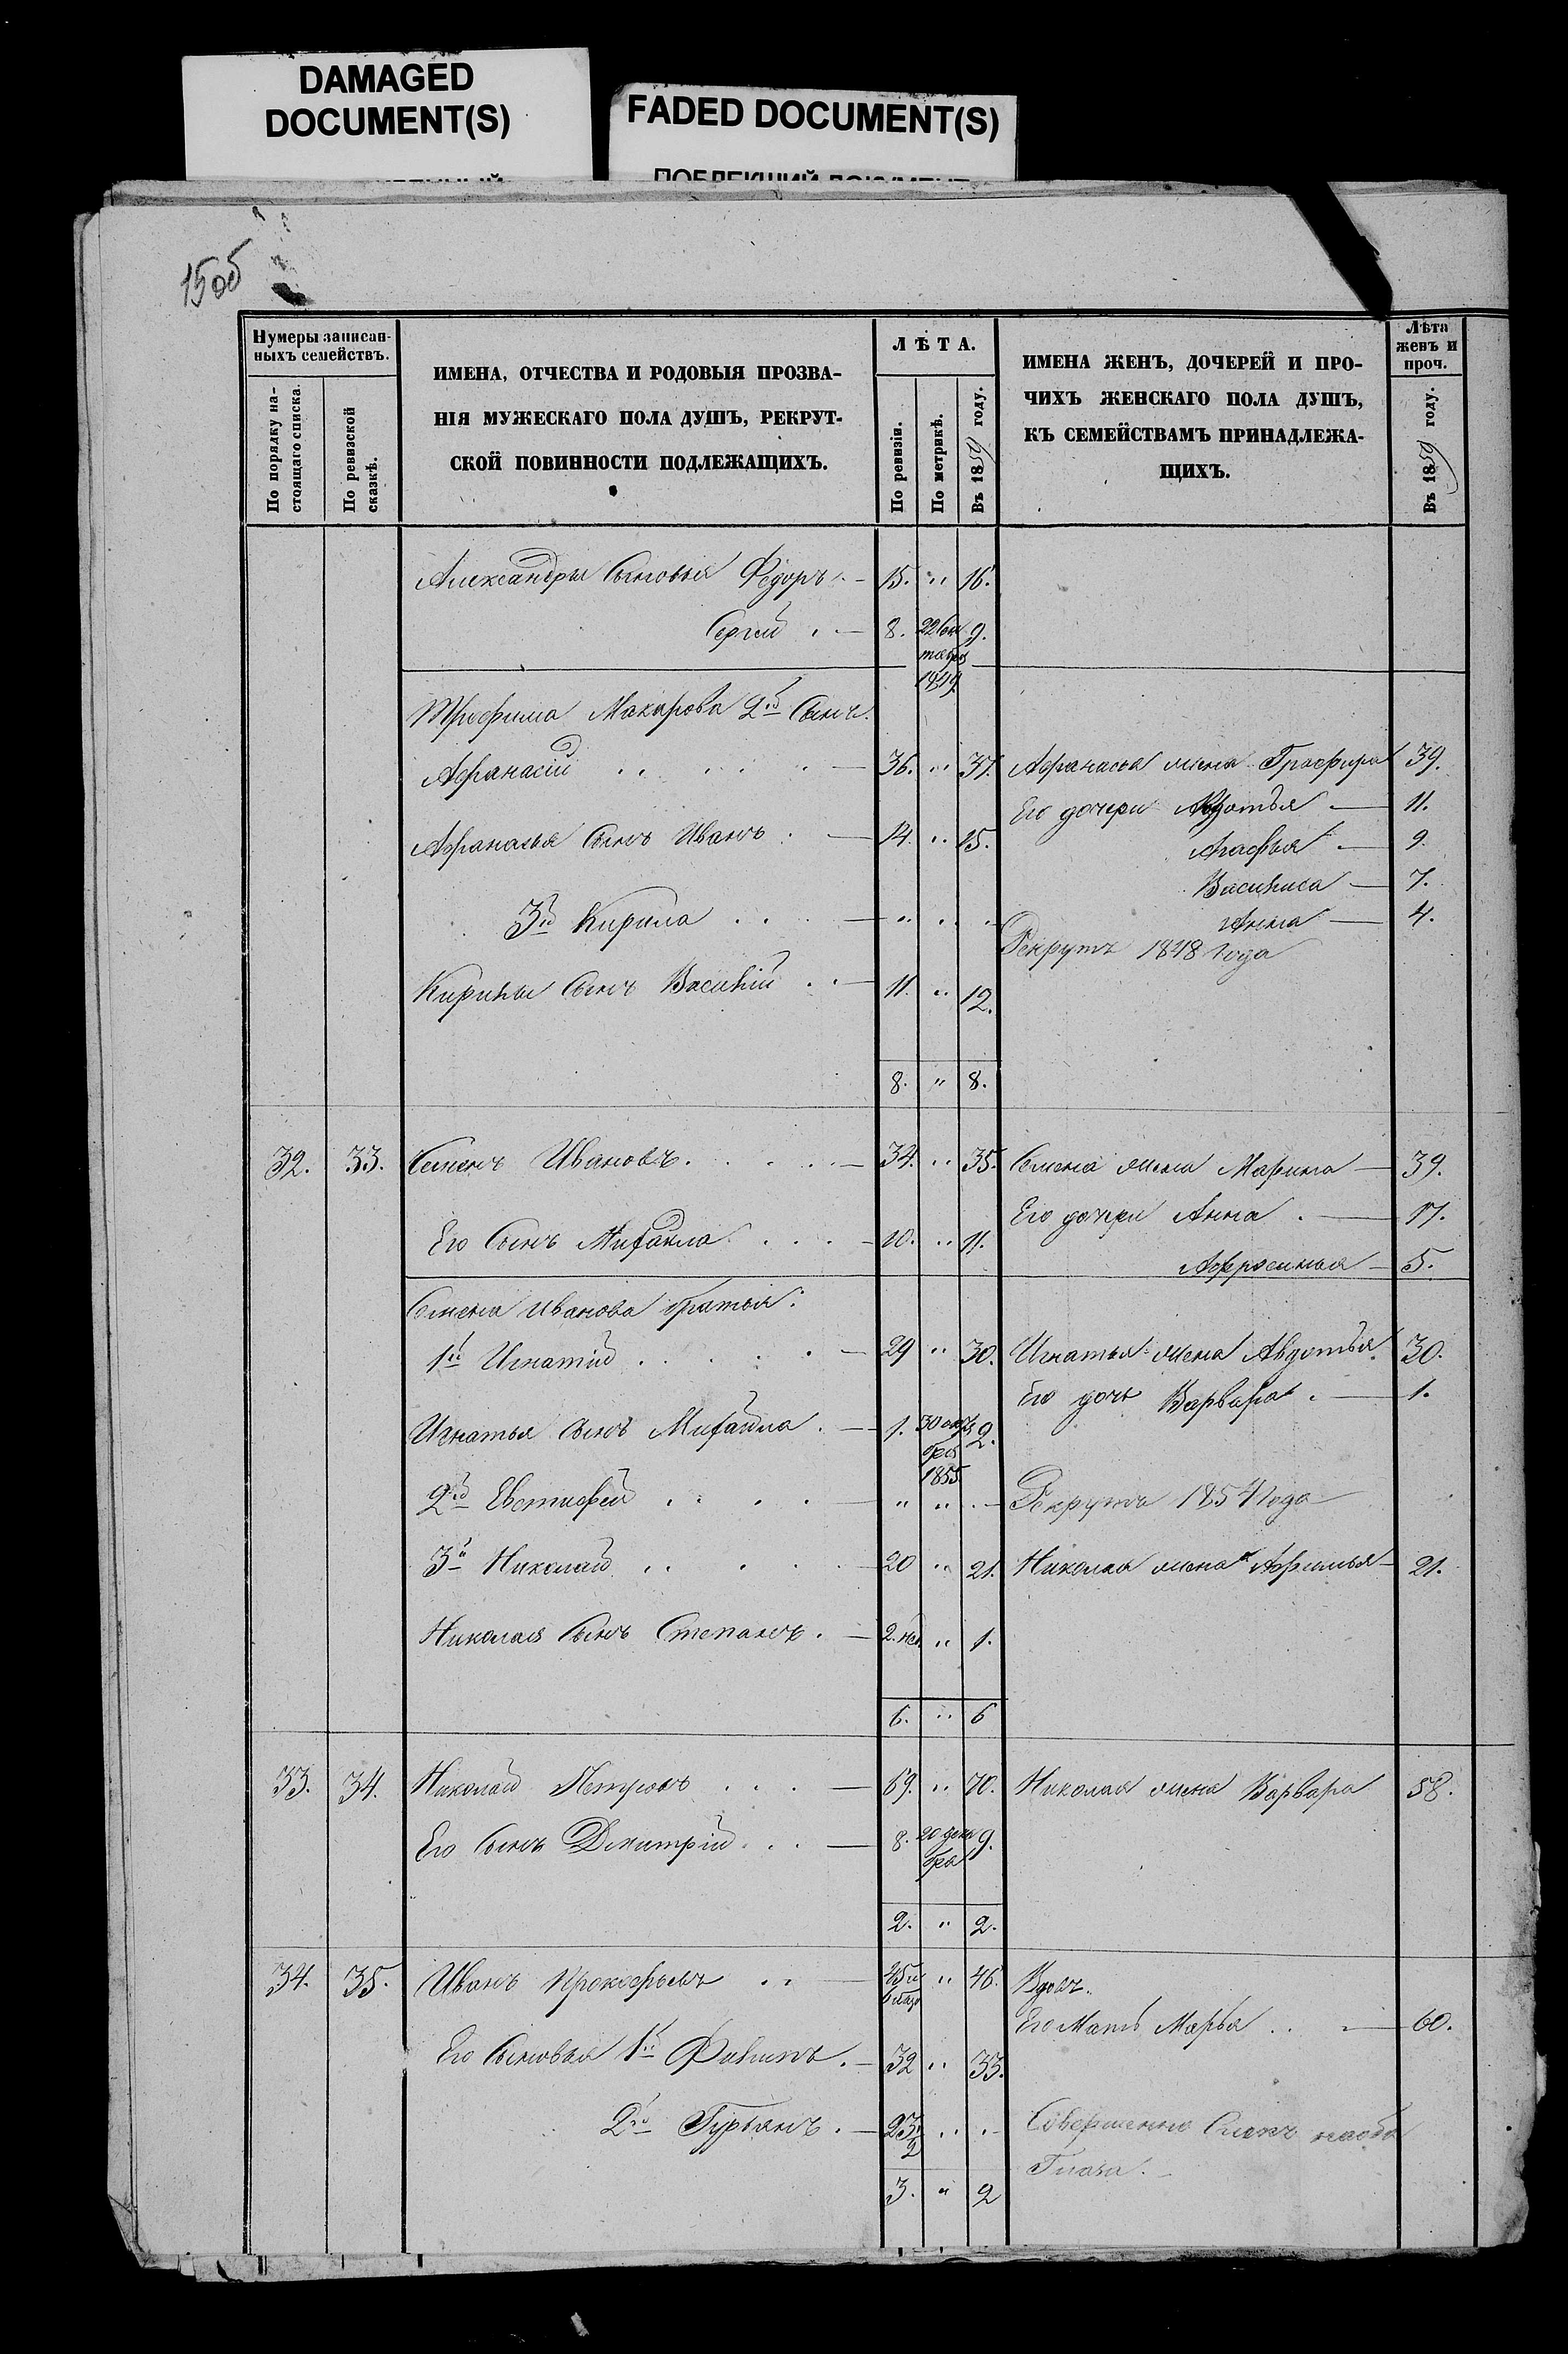 DAMAGED
DOCUMENT(S)
FADED DOCUMENT(S)
15об
Нумеры записан-
ныхъ семействъ.
По порядку на-
стоящаго списка.
По ревизской
сказкѣ.
ИМЕНА, ОТЧЕСТВА И РОДОВЫЯ ПРОЗВА-
НІЯ МУЖЕСКАГО ПОЛА ДУШЪ, РЕКРУТ-
СКОЙ ПОВИННОСТИ ПОДЛЕЖАЩИХЪ.
ЛѢТА.
По ревизіи.
По метрикѣ.
Въ 1859 году.
ИМЕНА ЖЕНЪ, ДОЧЕРЕЙ И ПРО-
ЧИХЪ ЖЕНСКАГО ПОЛА ДУШЪ,
КЪ СЕМЕЙСТВАМЪ ПРИНАДЛЕЖА-
ЩИХЪ.
Лѣта
женъ и
проч.
Въ 1859 году.
Александры Сыновья Федоръ. — 15. " 16.
Сергій . — 8. 22 Сен 9.
тября
1849.
Трофима Макарова 2й Сынъ.
Афанасій — 36. " 37. Афанасья жена Глафира 39.
Его дочери Авдотья — 11.
Афанасья Сынъ Иванъ . — 14. " 15.
Агафья — 9.
Василиса — 7.
3й Кирила — " " "
Анна — 4.
Рекрутъ 1848 года
Кирилы Сынъ Василій . . — 11. " 12.
8. " 8.
32. 33. Семенъ Ивановъ. — 34. " 35. Семена жена Марина — 39.
Его дочери Анна . — 17.
Его Сынъ Михаила — 10. " 11.
Афросинья — 5.
Семена Иванова братья:
1й Игнатій — 29 " 30. Игнатья жена Авдотья. 30.
Его дочь Варвара . — 1.
Игнатья Сынъ Михаила . — 1. 30 октя 2.
бря
1855
2й Евстифей — " " " — Рекрутъ 1854 года
3й Николай — 20 " 21. Николая жена Афимья — 21.
Николая Сынъ Степанъ . — 2. нед. " 1.
6. " 6
33. 34. Николай Петровъ — 69. " 70. Николая жена Варвара 58.
Его Сынъ Дмитрій . . — 8. 20 дека 9.
бря
2. " 2.
34. 35. Иванъ Прокофьевъ . . — 45 " 46. Вдовъ.
Его Мать Марья . . — 60.
Его Сыновья 1й Филипъ . — 32 " 33.
2й Гурьянъ . — 23 " " Совершенно Слепъ на оба
2
Глаза.
3. " 2